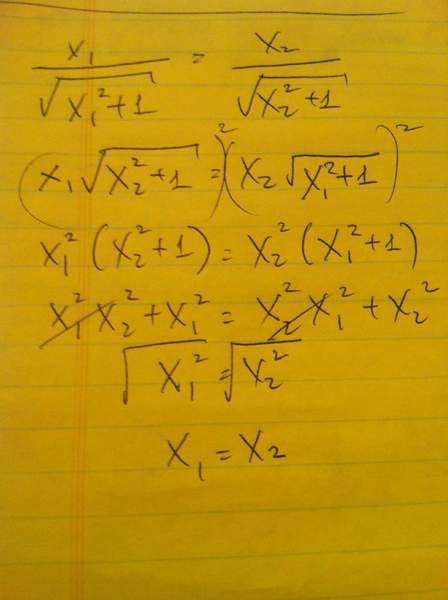 x₁/√(x₁²+1) = x₂/√(x₂²+1)
(x₁√(x₂²+1))² = (x₂√(x₁²+1))²
x₁²(x₂²+1) = x₂²(x₁²+1)
x₁²x₂²+x₁² = x₂²x₁²+x₂²
√x₁² = √x₂²
x₁ = x₂